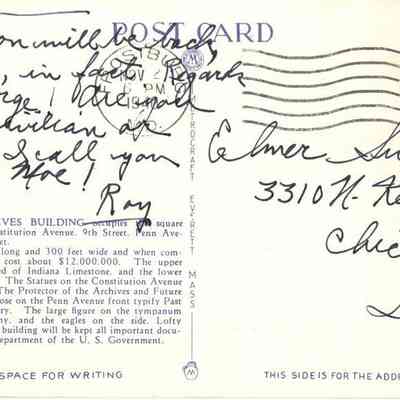 POST CARD
on will be back,
, in fact. Regards
rge! The mall
ivilian of
I call you
Moe!
Roy
NOV 2
PM
VES BUILDING occupies the square
stitution Avenue, 9th Street, Penn Ave-
et.
long and 300 feet wide and when com-
cost about $12,000,000. The upper
d of Indiana Limestone, and the lower
The Statues on the Constitution Avenue
The Protector of the Archives and Future
ose on the Penn Avenue front typify Past
ry. The large figure on the tympanum
ny, and the eagles on the side. Lofty
building will be kept all important docu-
epartment of the U. S. Government.
SPACE FOR WRITING
EVERETT MASS
Elmer Su
3310 N. Ke
Chic
THIS SIDE IS FOR THE ADDR